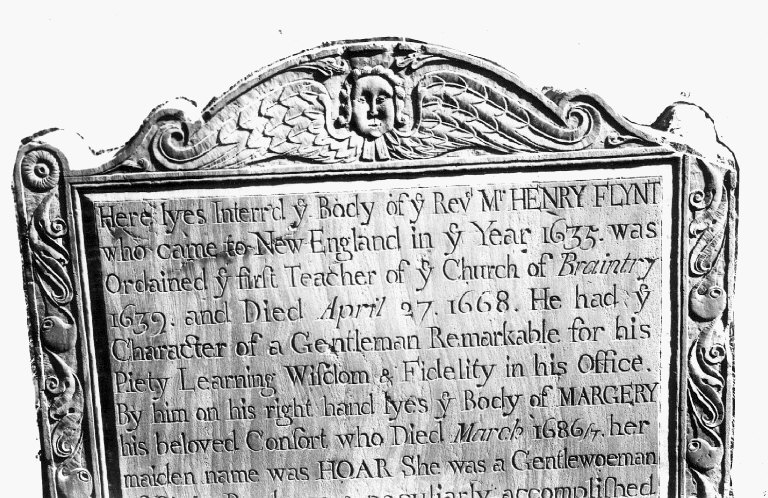 Here lyes Interr'd yͤ Body of yͤ Revᵈ Mʳ HENRY FLYNT
who came to New England in yͤ Year 1635. was
Ordained yͤ firſt Teacher of yͤ Church of Braintry
1639. and Died April 27. 1668. He had yͤ
Character of a Gentleman Remarkable for his
Piety Learning Wiſdom & Fidelity in his Office.
By him on his right hand lyes yͤ Body of MARGERY
his beloved Conſort who Died March 1686/7. her
maiden name was HOAR She was a Gentlewoeman
peculiarly accompliſhed